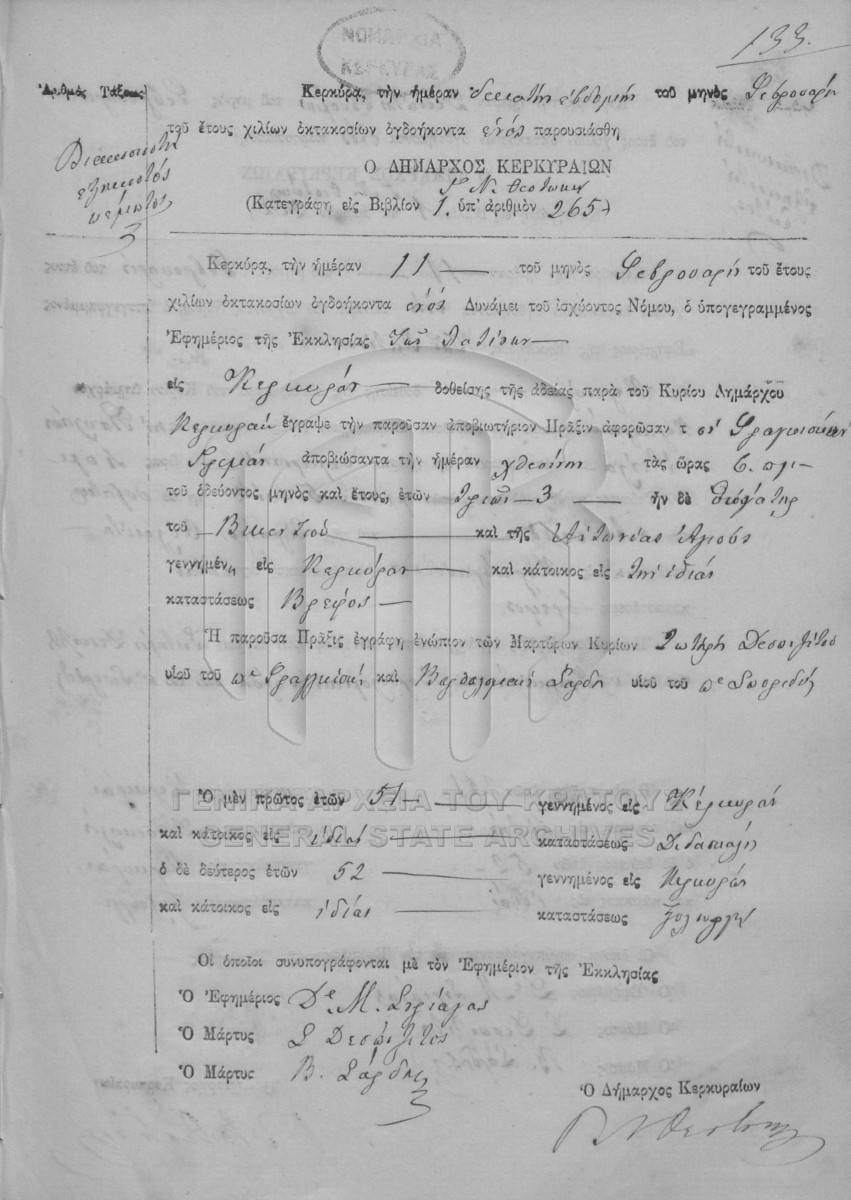 133.
ΝΟΜΑΡΧΙΑ
ΚΕΡΚΥΡΑΣ
Ἀριθμὸς Τάξεως
Διακοσιοστὴ
ἑξηκοστὸς
πέμπτος
Κερκύρα, τὴν ἡμέραν δεκάτην ἑβδόμην τοῦ μηνὸς Φεβρουαρίου
τοῦ ἔτους χιλίων ὀκτακοσίων ὀγδοήκοντα ἑνὸς παρουσιάσθη
Ο ΔΗΜΑΡΧΟΣ ΚΕΡΚΥΡΑΙΩΝ
Ν. Θεοτόκην
(Κατεγράφη εἰς Βιβλίον 1. ὑπ' ἀριθμὸν 265)
Κερκύρα, τὴν ἡμέραν 11 τοῦ μηνὸς Φεβρουαρίου τοῦ ἔτους
χιλίων ὀκτακοσίων ὀγδοήκοντα ἑνὸς Δυνάμει τοῦ ἰσχύοντος Νόμου, ὁ ὑπογεγραμμένος
Ἐφημέριος τῆς Ἐκκλησίας τῶν Λατίνων
εἰς Κέρκυραν δοθείσης τῆς ἀδείας παρὰ τοῦ Κυρίου Δημάρχου
Κερκυραίων ἔγραψε τὴν παροῦσαν ἀποβιωτήριον Πρᾶξιν ἀφορῶσαν τ
ἀποβιώσαντα τὴν ἡμέραν χθεσινὴν τὰς ὥρας 6. π.μ.
τοῦ ὁδεύοντος μηνὸς καὶ ἔτους, ἐτῶν τριῶν 3 ἦν δὲ θυγάτηρ
τοῦ Βικεντίου καὶ τῆς Ἀντωνίας
γεννημέν η εἰς Κέρκυραν καὶ κάτοικος εἰς τὴν ἰδίαν
καταστάσεως Βρέφος
Ἡ παροῦσα Πρᾶξις ἐγράφη ἐνώπιον τῶν Μαρτύρων Κυρίων Σωτήρη Δεσπιζίτου
υἱοῦ τοῦ πε Φραγκίσκου καὶ Βαρθολομαίου Σάρδη υἱοῦ τοῦ πε Σπυρίδ
Ὁ μὲν πρῶτος ἐτῶν 51 γεννημένος εἰς Κέρκυραν
καὶ κάτοικος εἰς ἰδίαν καταστάσεως Διδάσκαλος
ὁ δὲ δεύτερος ἐτῶν 52 γεννημένος εἰς Κέρκυραν
καὶ κάτοικος εἰς ἰδίαν καταστάσεως ξυλουργὸς
Οἱ ὁποῖοι συνυπογράφονται μὲ τὸν Ἐφημέριον τῆς Ἐκκλησίας
Ὁ Ἐφημέριος Dr. Μ. Σπριάγας
Ὁ Μάρτυς Σ Δεσπιζίτος
Ὁ Μάρτυς Β. Σάρδης
Ὁ Δήμαρχος Κερκυραίων
ΓΕΝΙΚΑ ΑΡΧΕΙΑ ΤΟΥ ΚΡΑΤΟΥΣ
GENERAL STATE ARCHIVES